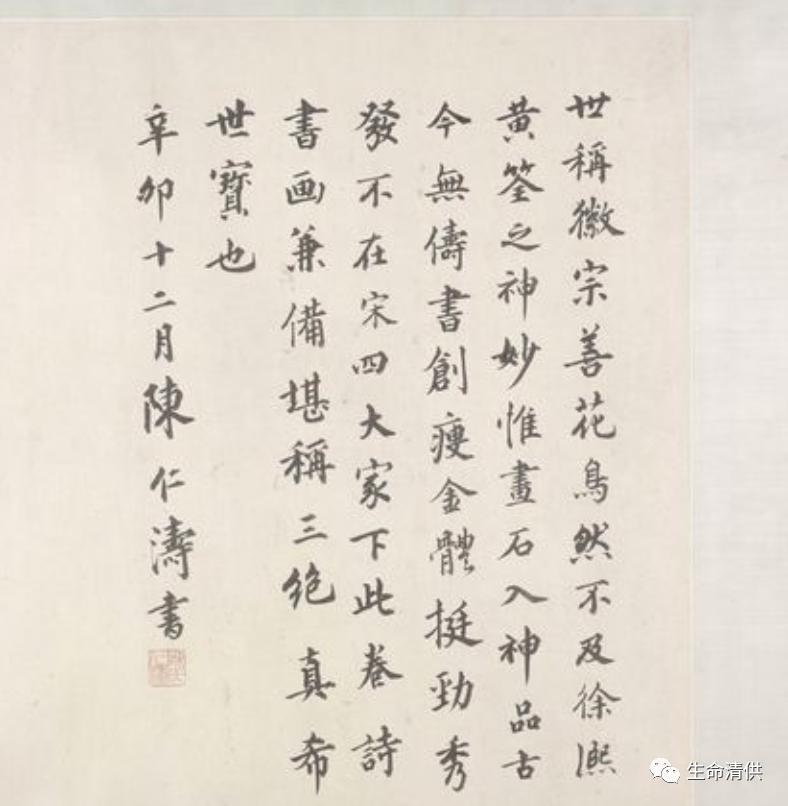 世稱徽宗善花鳥然不及徐熙
黃筌之神妙惟畫石入神品古
今無儔書創瘦金體挺勁秀
發不在宋四大家下此卷詩
書画兼備堪稱三絕真希
世寶也
辛卯十二月陳仁濤書
生命清供